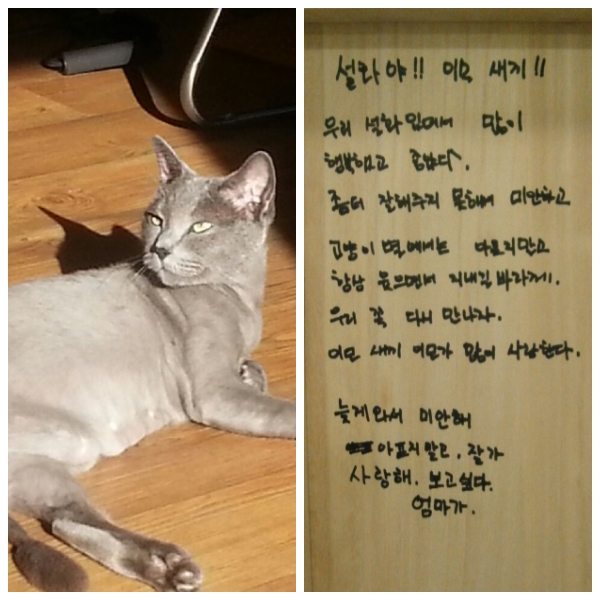 설화야!! 이모 새끼!!
우리 설화 있어서 많이
행복하고 고맙다^.
좀더 잘해주지 못해서 미안하고
고양이 별에서는 아프지만고
항상 웃으면서 지내길 바라께.
우리 꼭 다시 만나자.
이모 새끼 이모가 많이 사랑한다.
늦게와서 미안해
아프지말고, 잘가
사랑해. 보고싶다.
엄마가.